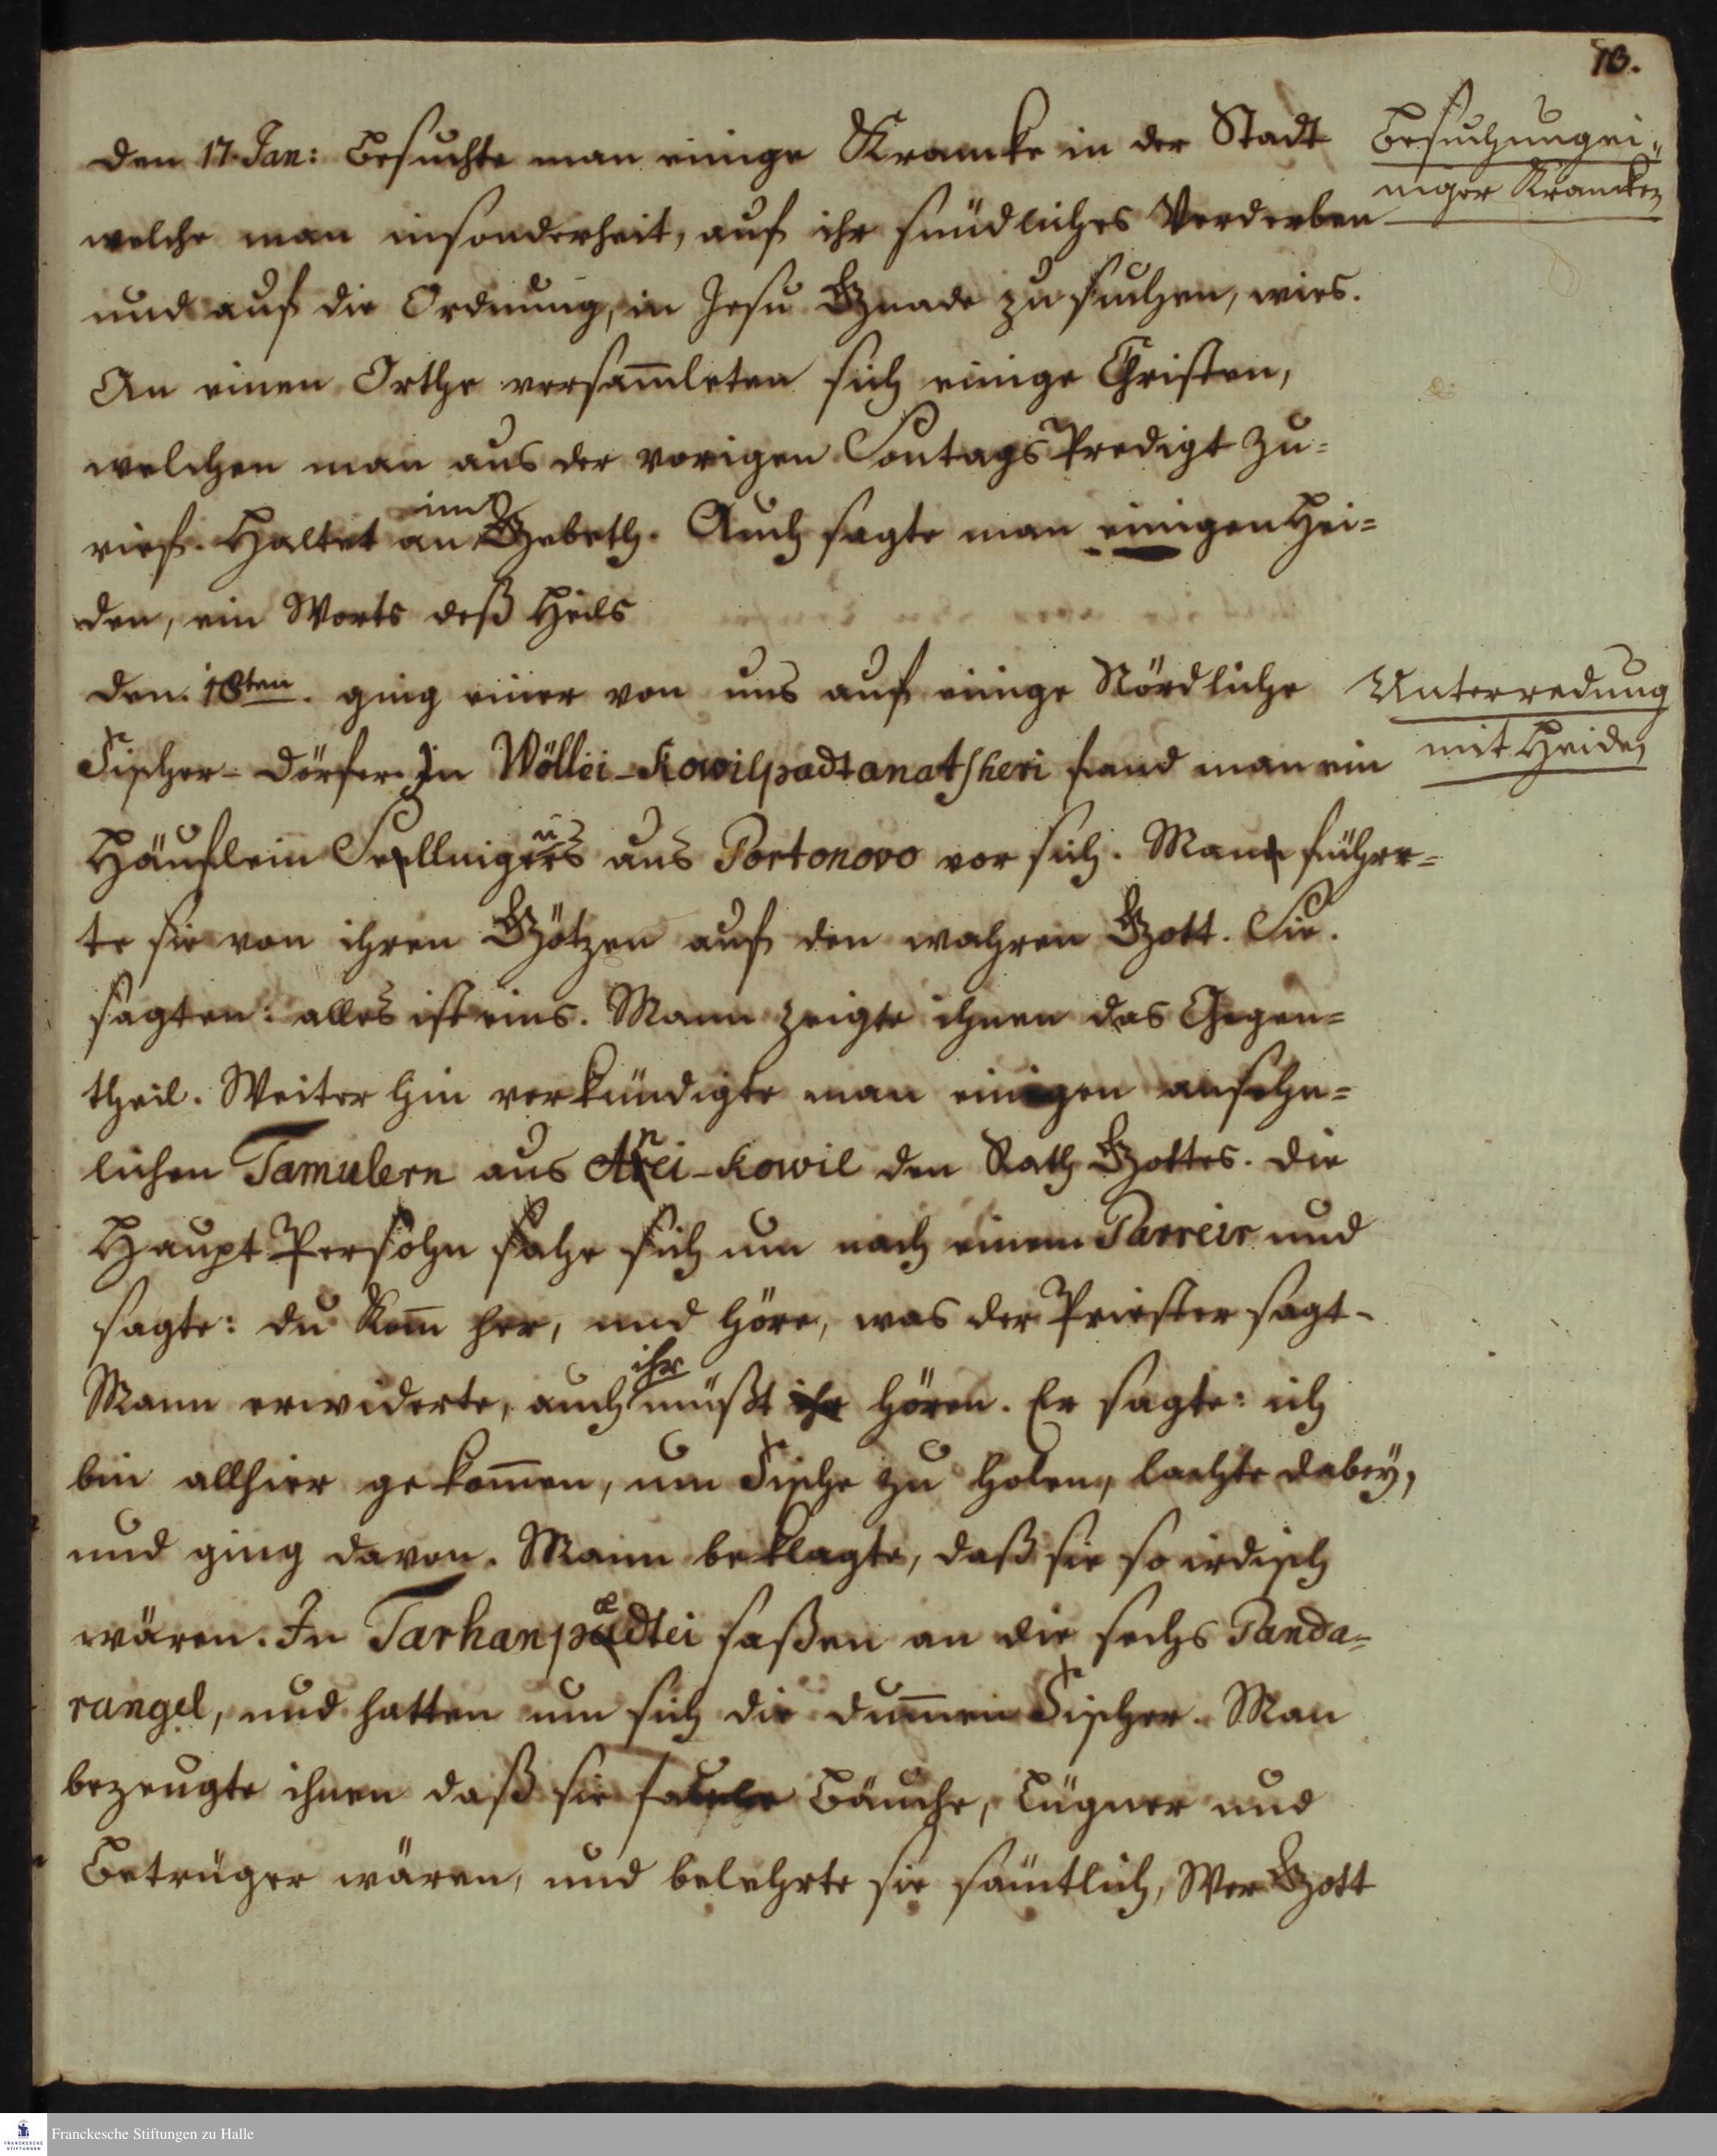 13.
den 17. Jan: besuchte man einige Krancke in der Stadt
Besuchung ei„
niger Krancken
welche man insonderheit, auf ihr sündliches Verderben
und auf die Ordnung, in Jesu Gnade zu suchen, wies.
An einen Orthe versam̄leten sich einige Christen,
welchen man aus der vorigen Sontags Predigt zu=
rief. Haltet an im Gebeth. Auch sagte man einigen Hei=
den, ein Worts deß Heils
den 18ten. ging einer von uns auf einige Nördliche
Unterredung
mit Heiden
Fischer-Dörfer. In Wöllei-Kowilpadtanatsheri fand man ein
Häuflein aus Portonovo vor sich. Man führe=
te sie von ihren Götzen auf den wahren Gott. Sie.
sagten: alles ist eins. Mann zeigte ihnen das Gegen=
theil. Weiter hin verkündigte man einigen ansehn=
lichen Tamulern aus Anei-Kowil den Rath Gottes. Die
Haupt Persohn sahe sich um nach einem Parreir und
sagte: du Kom̄ her, und höre, was der Priester sagt-
Mann erwiderte, auch ihr müßt ihr hören. Er sagte: ich
bin allhier gekom̄en, um Fische zu holen, lachte dabey,
und ging davon. Mann beklagte, daß sie so irdisch
wären. In Tarhanpadtei saßen an die sechs Panda=
rangel, und hatten um sich die dum̄en Fischer. Man
bezeugte ihnen daß sie faule Bäuche, Lügner und
Betrüger wären, und belehrte sie sämtlich, Wer Gott
Franckesche Stiftungen zu Halle
FRANCKESCHE
STIFTUNGEN